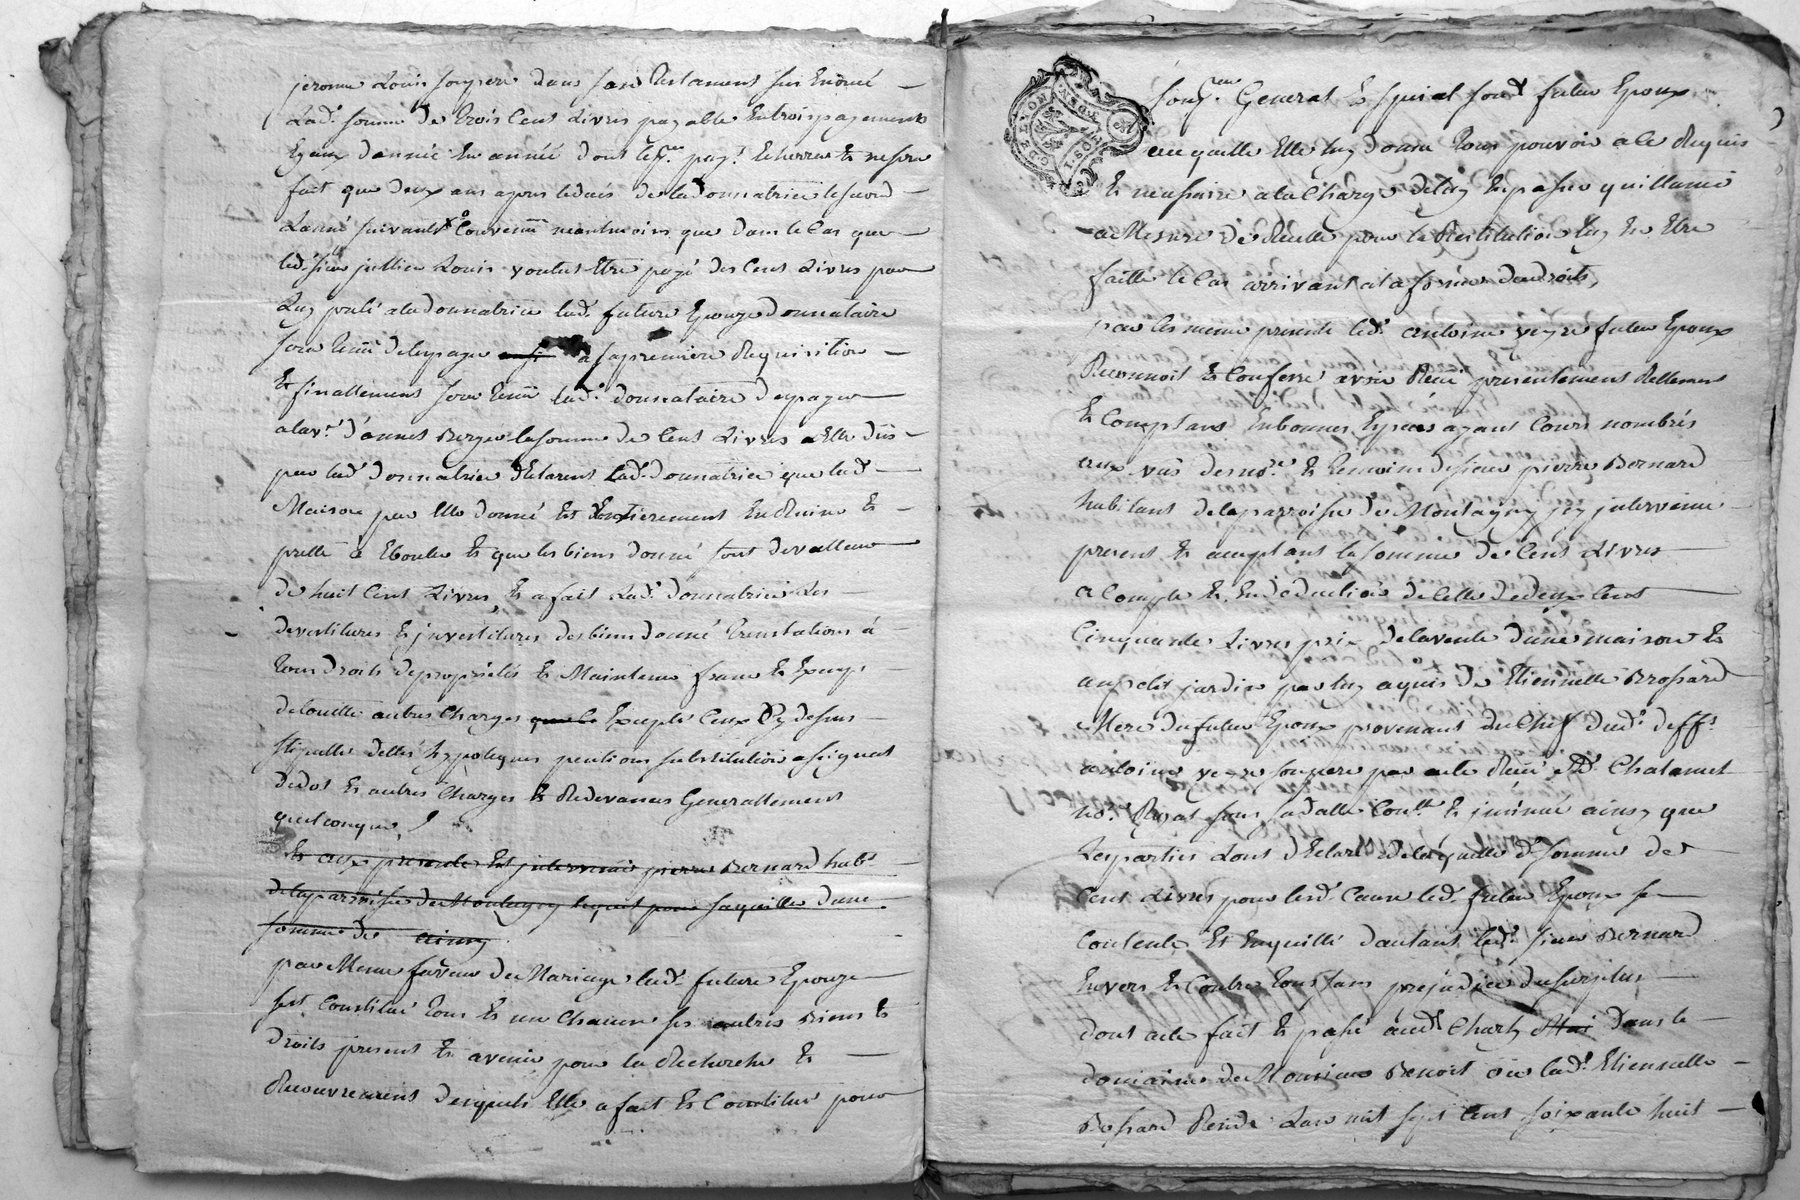 jerome Louis son pere dans son testament sus Enoncé
Lad. somme de trois Cent Livres payable Entrois payements
Egaux d'année En année dont le p.er pay.t
fait que deux ans apres le deces de la donnatrice le second
L'anné suivant Convenu neantmoins que dans le Cas que
led. sieur jullien Louis voulut Etre payé des Cent Livres par
Luy preté a la donnatrice lad. future Epouze donnataire
sera tenue de les payer a sa premiere Requisition
Et finallement sera tenue lad. donnataire de payer
d'annet Berger la somme de Cent Livres a Elle dûs
par lad. donnatrice declarent Lad. donnatrice que lad.
Maison par Elle donné Est Entierement En Ruine Et
prette a Ebouler Et que les biens donné sont de valleur
de huit Cent Livres Et a fait Lad. donnatrice Les
devertitures Et jnvestitures des biens donné translations â
tous droits de proprietés Et Maintenue franc Et Exempt
de toutte autres Charges que le Excepté Ceux Cy dessus
stipulle dettes hypoteques pentions substitution assignat
de dot Et autres Charges Et Redevances Generallement
quelconque
Et aux presente Est jntervenu pierre Bernard hab.t
de la parroisse de Montagny lequel pour sa quitte d'une
somme de
par Meme faveur de Mariage lad. future Epouze
s'est Constitué tous Et un Chacun ses autres Biens Et
droits present Et avenir pour la Recherche Et
Recouvrement desquels Elle a fait Et Constitué pour
son p.eur General Et special sond. futur Epoux
auquelle Elle luy donne tous pouvoir a ce Requis
Et necessaire a la Charge de luy En passer quittance
a Mesure de Recette pour la Restitution luy En Etre
faitte le Cas arrivant a la forme du droits
par les meme presente led. antoine veyre futur Epoux
Reconnoit Et Confesse avoir Recu presentement Rellement
Et Comptant En bonnes Especes ayant Cours nombrés
aux vûs des no.re Et temoins de sieur pierre Bernard
habitant de la parroisse de Montagny jcy jntervenue
present Et acceptant la somme de Cent Livres
a Compte Et En deduction de Celle de deux Cent
Cinquante Livres prix de la vente d'une maison Et
jardin par luy aquis de Etiennette Brossard
Mere du futur Epoux provenant du Chef dud. deff.t
antoine veyre son pere par acte Recu M.e Chatamet
no.re Royal sous sa datte Cont.lé Et jnsinué ainsy que
Les parties L'ont declaré de laquelle d. somme de
Cent Livres pour lesd. Cause led. futur Epoux se
Contente Et En quitte d'autant led. sieur Bernard
Envers Et Contre tous sans prejudice du surplus
dont acte fait Et passé aud. Charly dans le
domaine de Monsieur Benoit où lad. Etiennette
Bossard Reside L'an mil sept Cent soixante huit